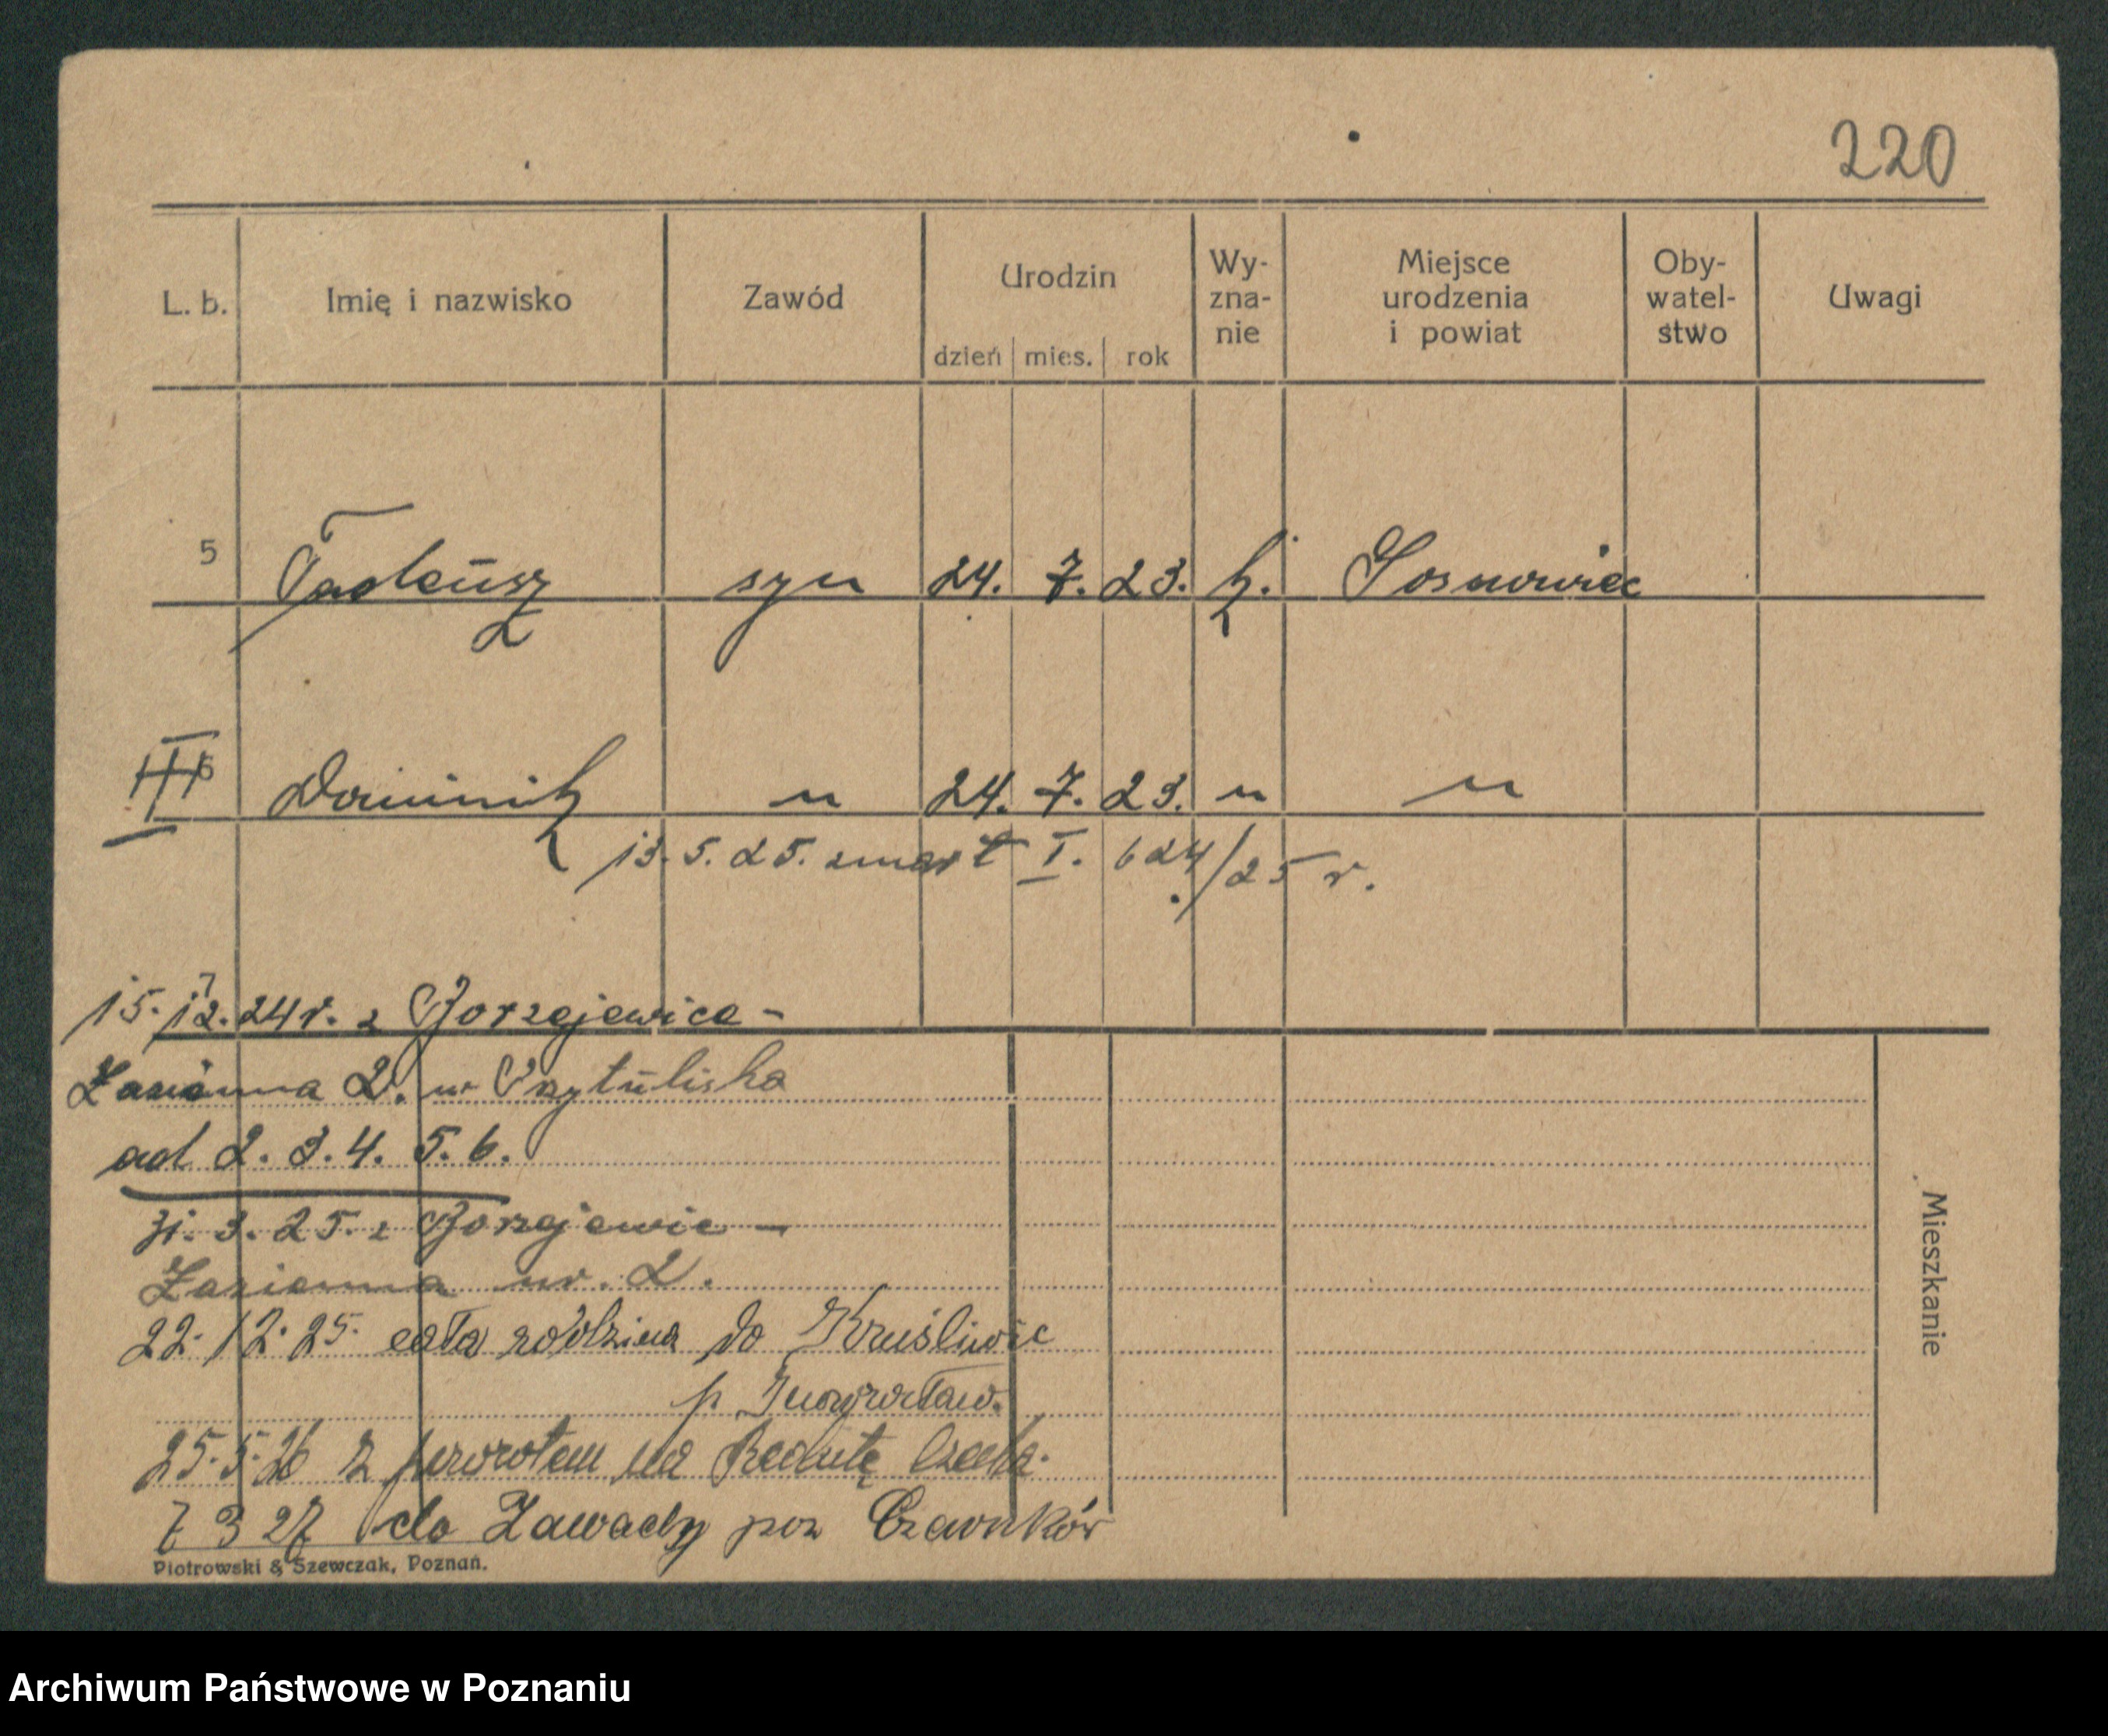 220
L. b. Imię i nazwisko Zawód Urodzin Wy- zna- nie Miejsce urodzenia i powiat Oby- watel- stwo Uwagi
dzień mies. rok
5 Tadeusz syn 24. 7. 23. k. Sosnowiec
6 Dominik " 24. 7. 23. " "
13. 5. 25. zmarł I. 624/25 r.
15. 12. 24 r. z Borzejewice -
Łazienna 2. w Przytuliska
ad 2. 3. 4. 5. 6.
31. 3. 25. z Borzejewic -
Łazienna nr. 2.
22. 12. 25. cała rodzina do Kruśliwic
p. Inowrocław.
25. 5. 26 z powrotem na Redutę
7 3 27 do Zawady pow Czarnków
Mieszkanie
Piotrowski & Szewczak, Poznań.
Archiwum Państwowe w Poznaniu